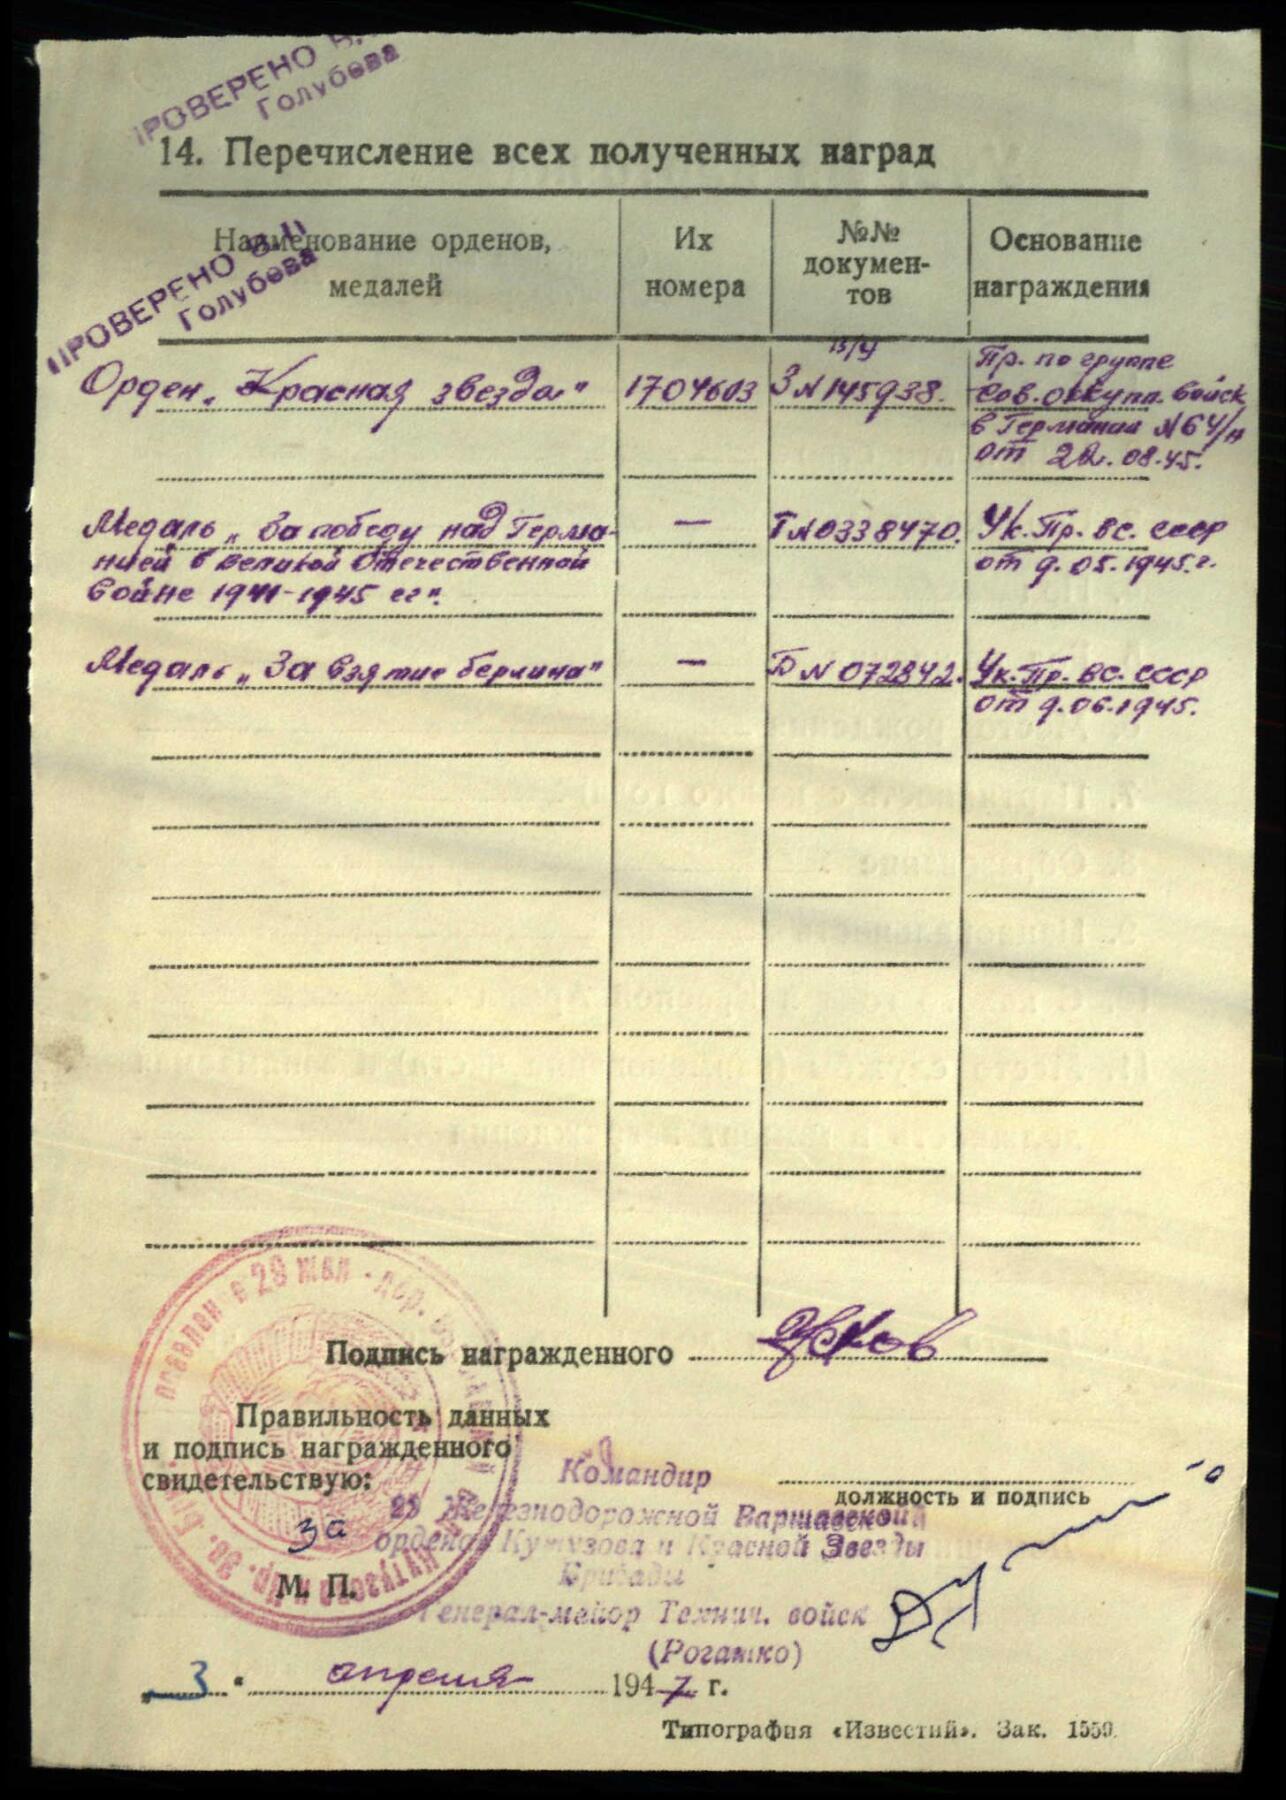 ПРОВЕРЕНО В.
Голубева
14. Перечисление всех полученных наград
Наименование орденов, медалей
Их номера
№№ докумен-тов
Основание награждения
ПРОВЕРЕНО В.И
Голубева
Орден „Красная звезда"
1704603
З N 145938.
Пр. по группе
Сов. оккупп. войск
в Германии N 64/н
от 22. 08.45.
Медаль „За победу над Герма-
нией в Великой Отечественной
войне 1941-1945 гг".
—
Г N 0338470.
Ук. Пр. ВС. СССР
от 9.05.1945.г.
Медаль „За взятие Берлина"
—
Б N 072842.
Ук. Пр. ВС. СССР
от 9.06.1945.
Подпись награжденного
Правильность данных
и подпись награжденного
свидетельствую:
за
М. П.
Командир
29 Железнодорожной Варшавской
ордена Кутузова и Красной Звезды
Бригады
Генерал-майор Технич. войск
(Рогатко)
должность и подпись
„3" апреля 1947 г.
Типография «Известий». Зак. 1559.